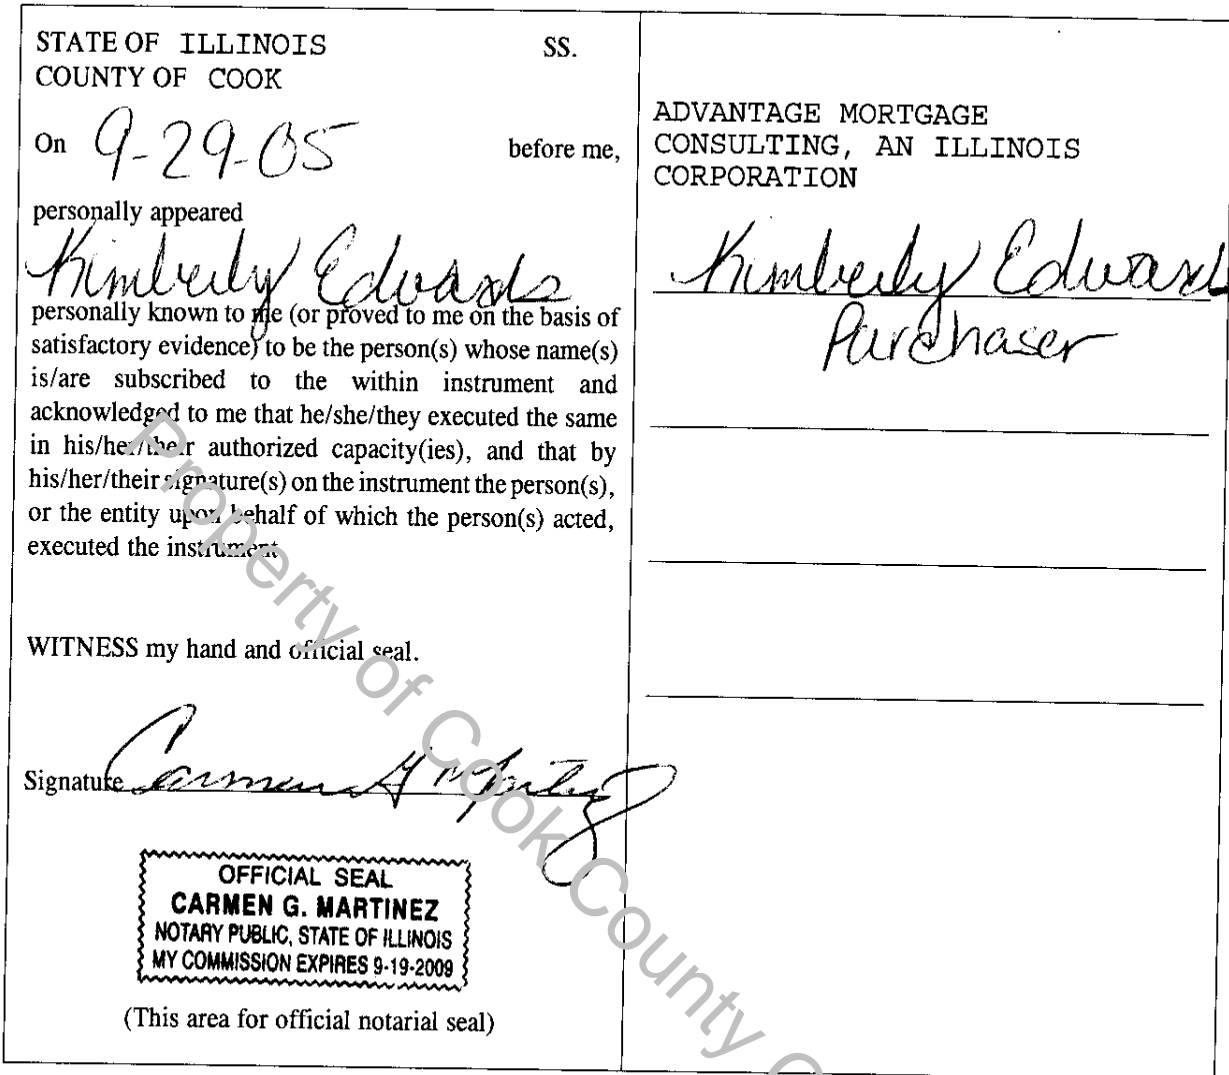 STATE OF ILLINOIS SS.
COUNTY OF COOK
On 9-29-05 before me,
personally appeared
Kimberly Edwards
personally known to me (or proved to me on the basis of
satisfactory evidence) to be the person(s) whose name(s)
is/are subscribed to the within instrument and
acknowledged to me that he/she/they executed the same
in his/her/their authorized capacity(ies), and that by
his/her/their signature(s) on the instrument the person(s),
or the entity upon behalf of which the person(s) acted,
executed the instrument
WITNESS my hand and official seal.
Signature Carmen G Martinez
OFFICIAL SEAL
CARMEN G. MARTINEZ
NOTARY PUBLIC, STATE OF ILLINOIS
MY COMMISSION EXPIRES 9-19-2009
(This area for official notarial seal)
ADVANTAGE MORTGAGE
CONSULTING, AN ILLINOIS
CORPORATION
Kimberly Edwards
Purchaser
Property of Cook County